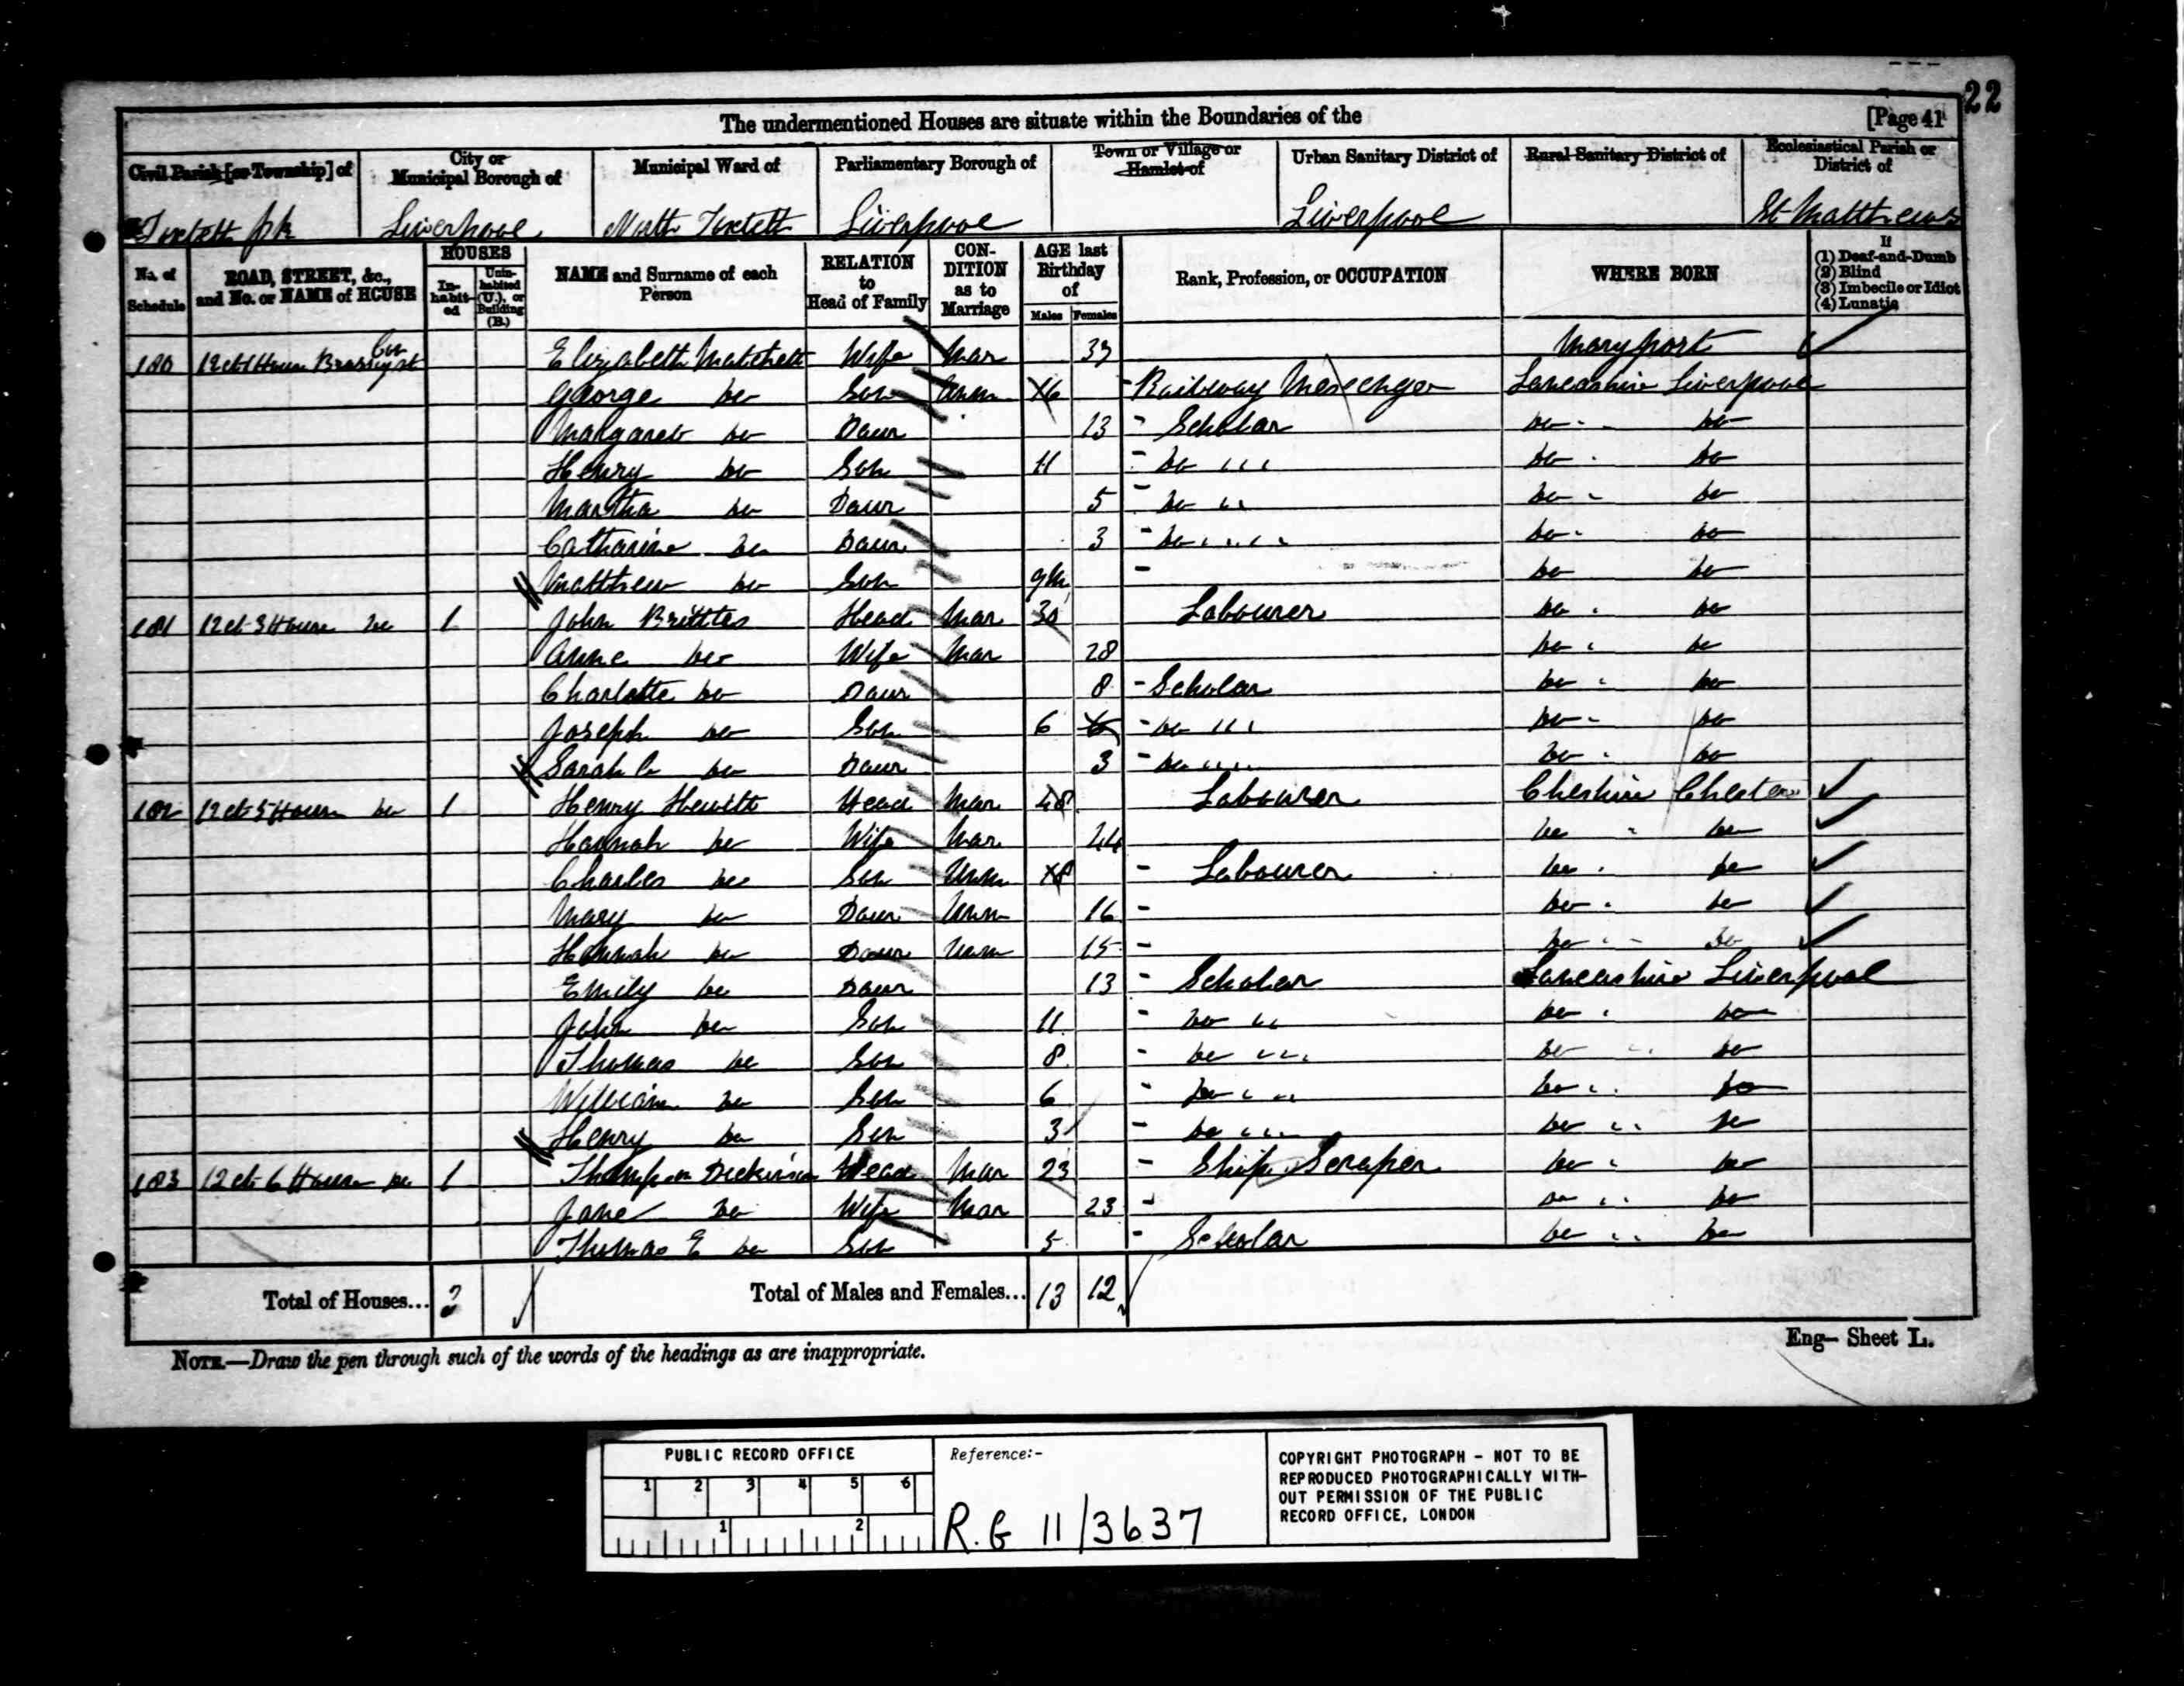 22
The undermentioned Houses are situate within the Boundaries of the [Page 41
Civil Parish [or Township] of City or Municipal Borough of Municipal Ward of Parliamentary Borough of Town or Village or Hamlet of Urban Sanitary District of Rural Sanitary District of Ecclesiastical Parish or District of
Toxteth pk Liverpool North Toxteth Liverpool Liverpool St Matthews
No. of Schedule ROAD, STREET, &c., and No. or NAME of HOUSE HOUSES Inhabited Uninhabited (U.), or Building (B.) NAME and Surname of each Person RELATION to Head of Family CONDITION as to Marriage AGE last Birthday of Males Females Rank, Profession, or OCCUPATION WHERE BORN If (1) Deaf-and-Dumb (2) Blind (3) Imbecile or Idiot (4) Lunatic
180 12 ct 1 House st Elizabeth Matchett Wife Mar Maryport
George do Son Unm 16 Railway Messenger Lancashire Liverpool
Margaret do Daur 13 Scholar do do
Henry do Son 11 do do do
Martha do Daur 5 do do do
Catharine do Daur 3 do do do
Matthew do Son 9m do do
181 12 ct 3 House do 1 John Brittles Head Mar 30 Labourer do do
Anne do Wife Mar 28 do do
Charlotte do Daur 8 Scholar do do
Joseph do Son 6 6 do do do
Sarah do Daur 3 do do do
182 12 ct 5 House do 1 Henry Hewitt Head Mar 48 Labourer Cheshire Chester
Hannah do Wife Mar 44 do do
Charles do Son Unm 18 Labourer do do
Mary do Daur Unm 16 do do
Hannah do Daur Unm 15 do do
Emily do Daur 13 Scholar Lancashire Liverpool
John do Son 11 do do do
Thomas do Son 8 do do do
William do Son 6 do do do
Henry do Son 3 do do do
183 12 ct 6 House do 1 Thompson Dickinson Head Mar 23 Ship Scraper do do
Jane do Wife Mar 23 do do
Thomas E do Son 5 Scholar do do
Total of Houses... 3 Total of Males and Females... 13 12
NOTE.—Draw the pen through such of the words of the headings as are inappropriate.
Eng— Sheet L.
PUBLIC RECORD OFFICE
1 2 3 4 5 6
1 2
Reference:-
R.G 11/3637
COPYRIGHT PHOTOGRAPH - NOT TO BE
REPRODUCED PHOTOGRAPHICALLY WITH-
OUT PERMISSION OF THE PUBLIC
RECORD OFFICE, LONDON